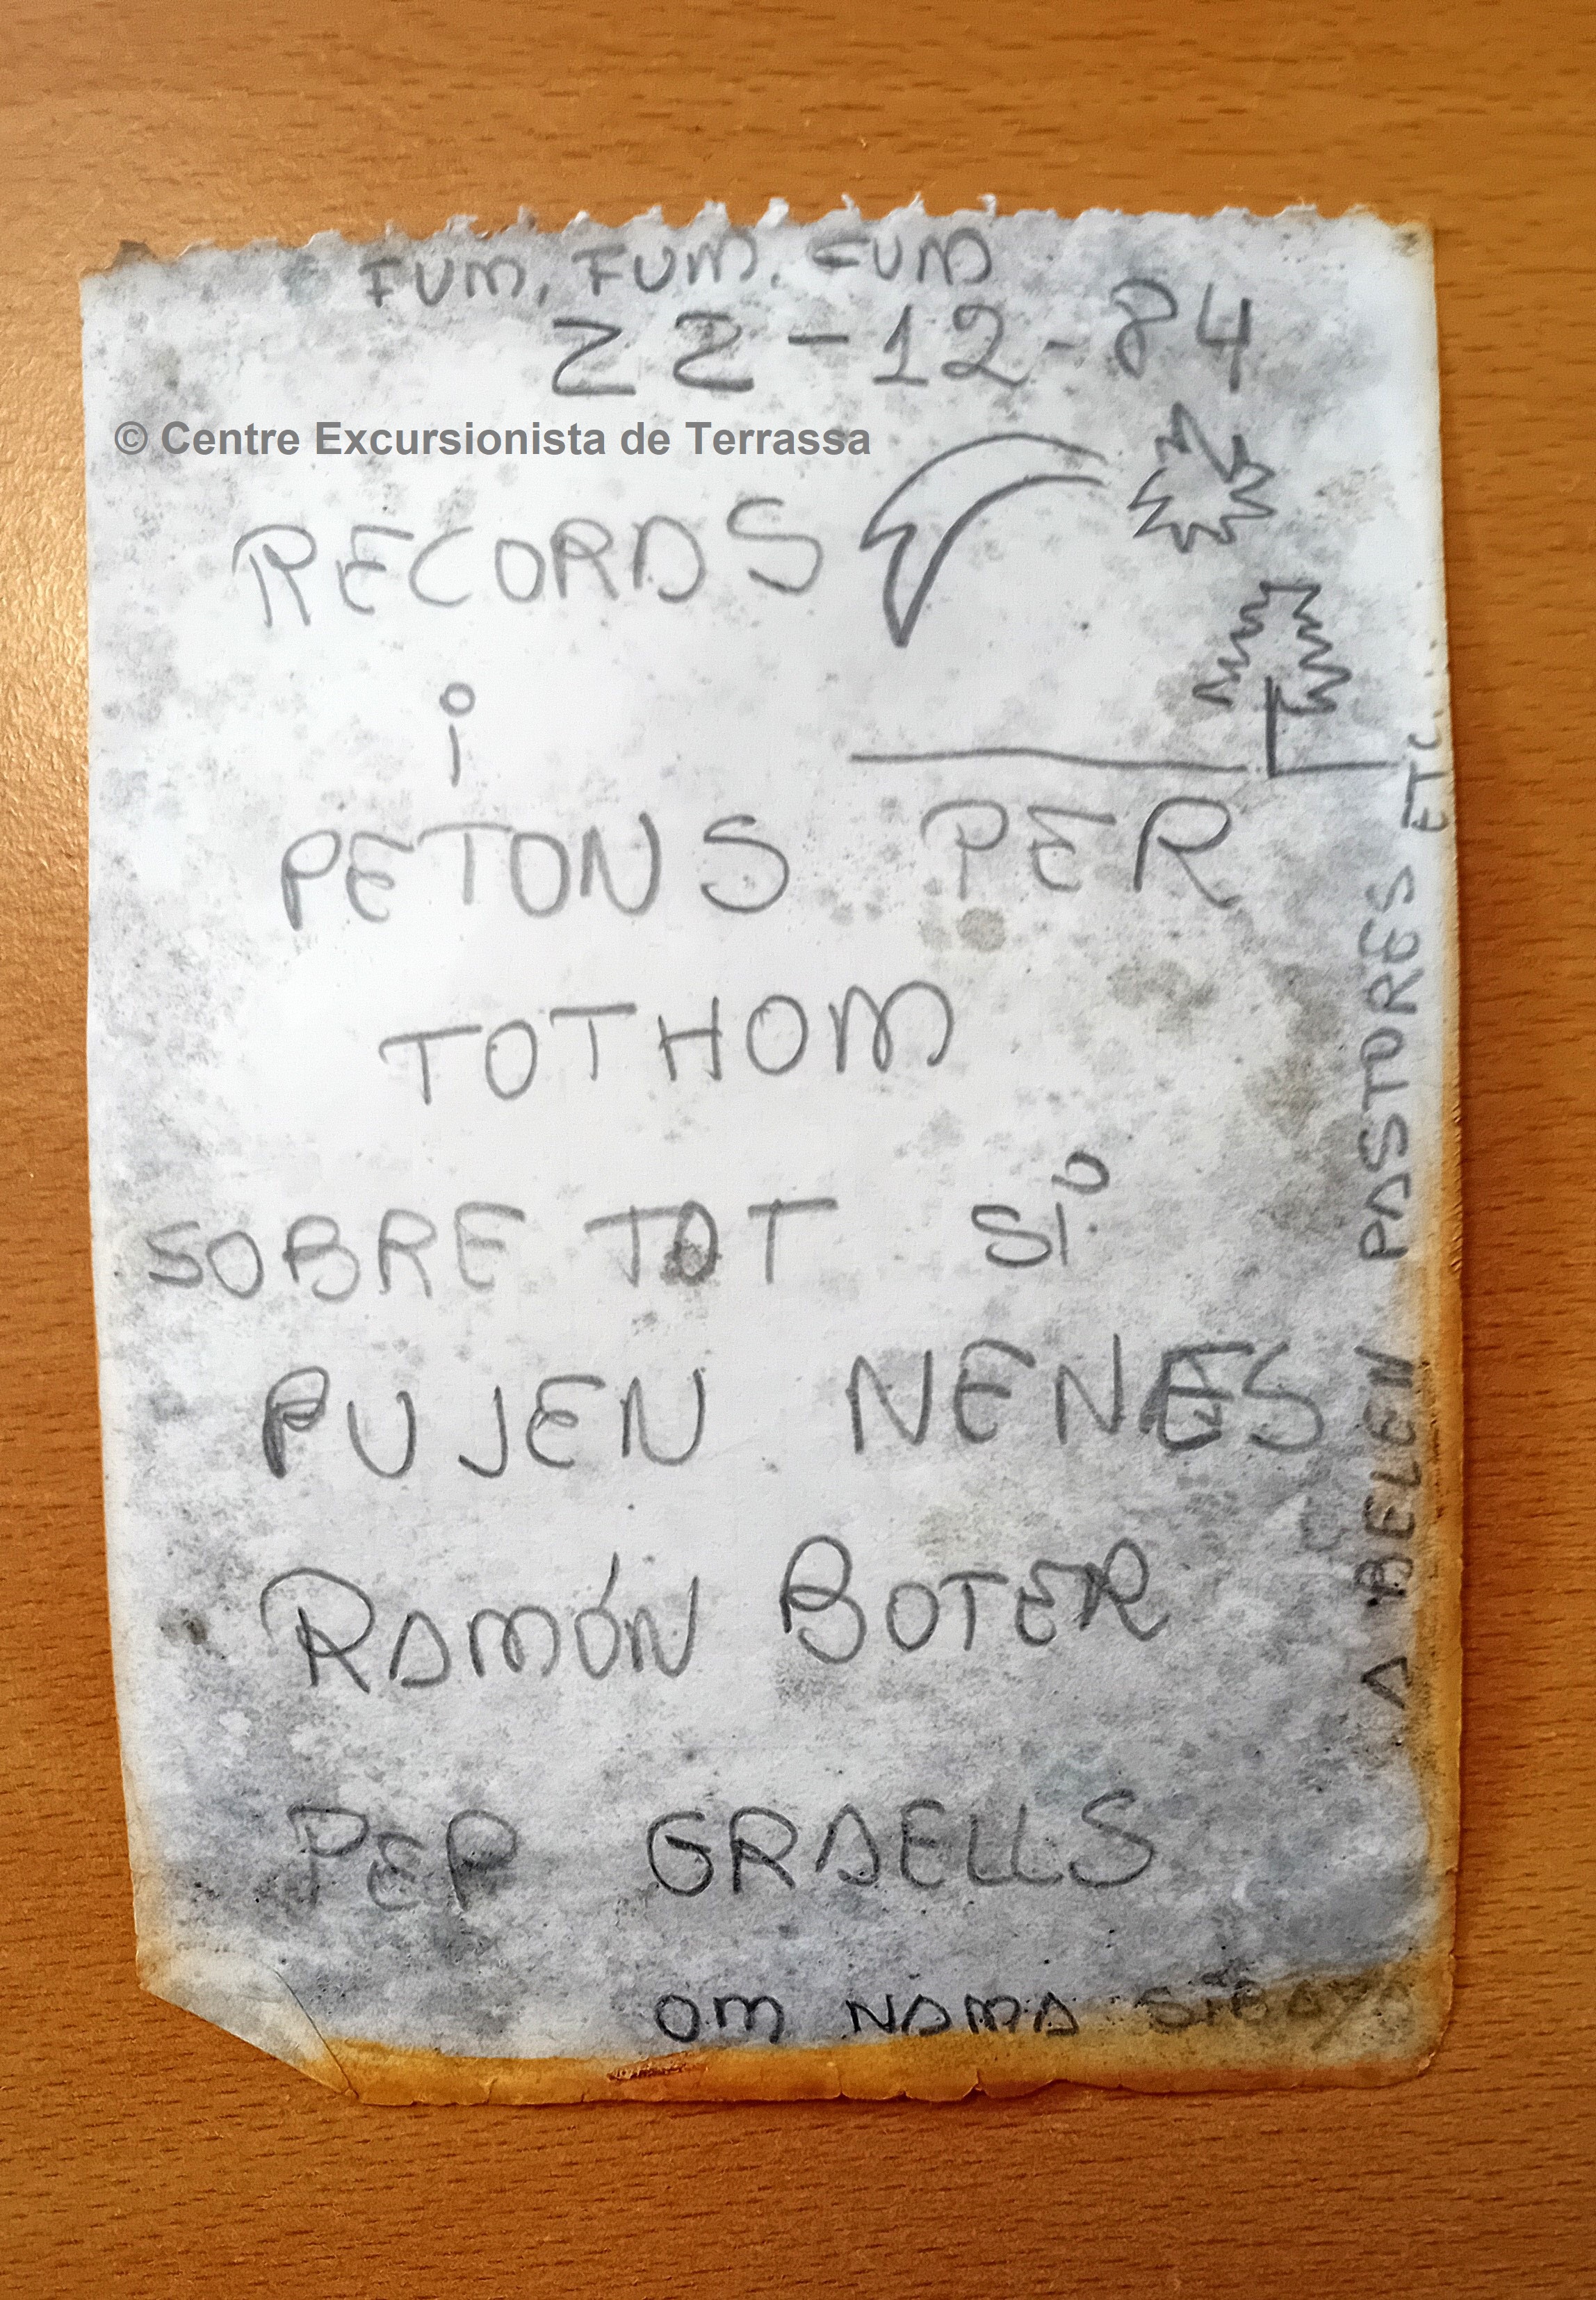 FUM, FUM, FUM
22-12-84
© Centre Excursionista de Terrassa
RECORDS
i
PETONS PER
TOTHOM
SOBRE TOT SI
PUJEN NENES
RAMÓN BOTER
PEP GRAELLS
OM NAMA
A BELEN PASTORES ETC...